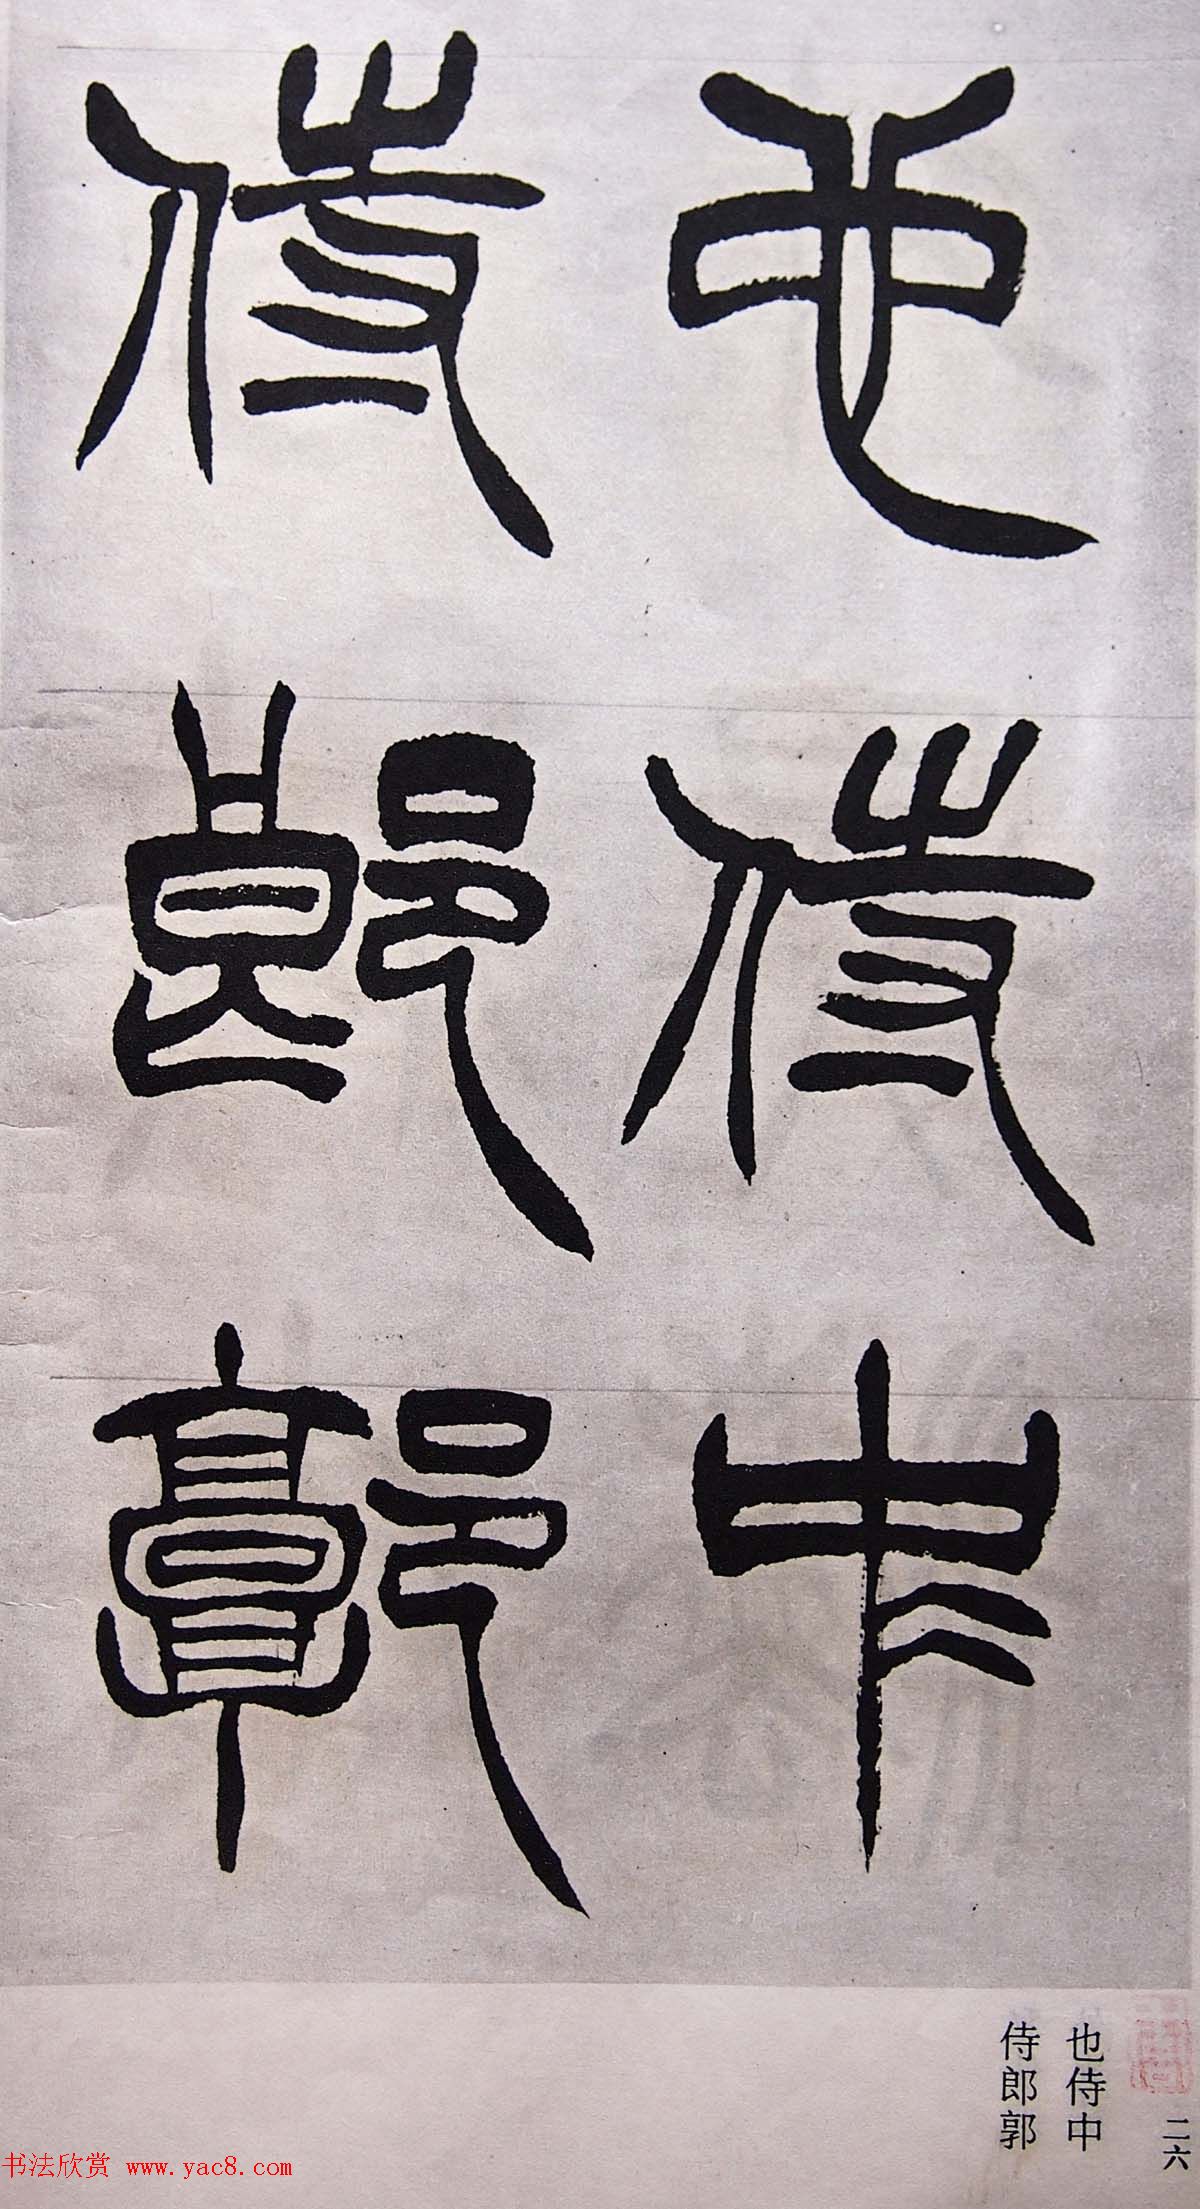 也侍中
侍郎郭
二六
也侍中
侍郎郭
书法欣赏 www.yac8.com